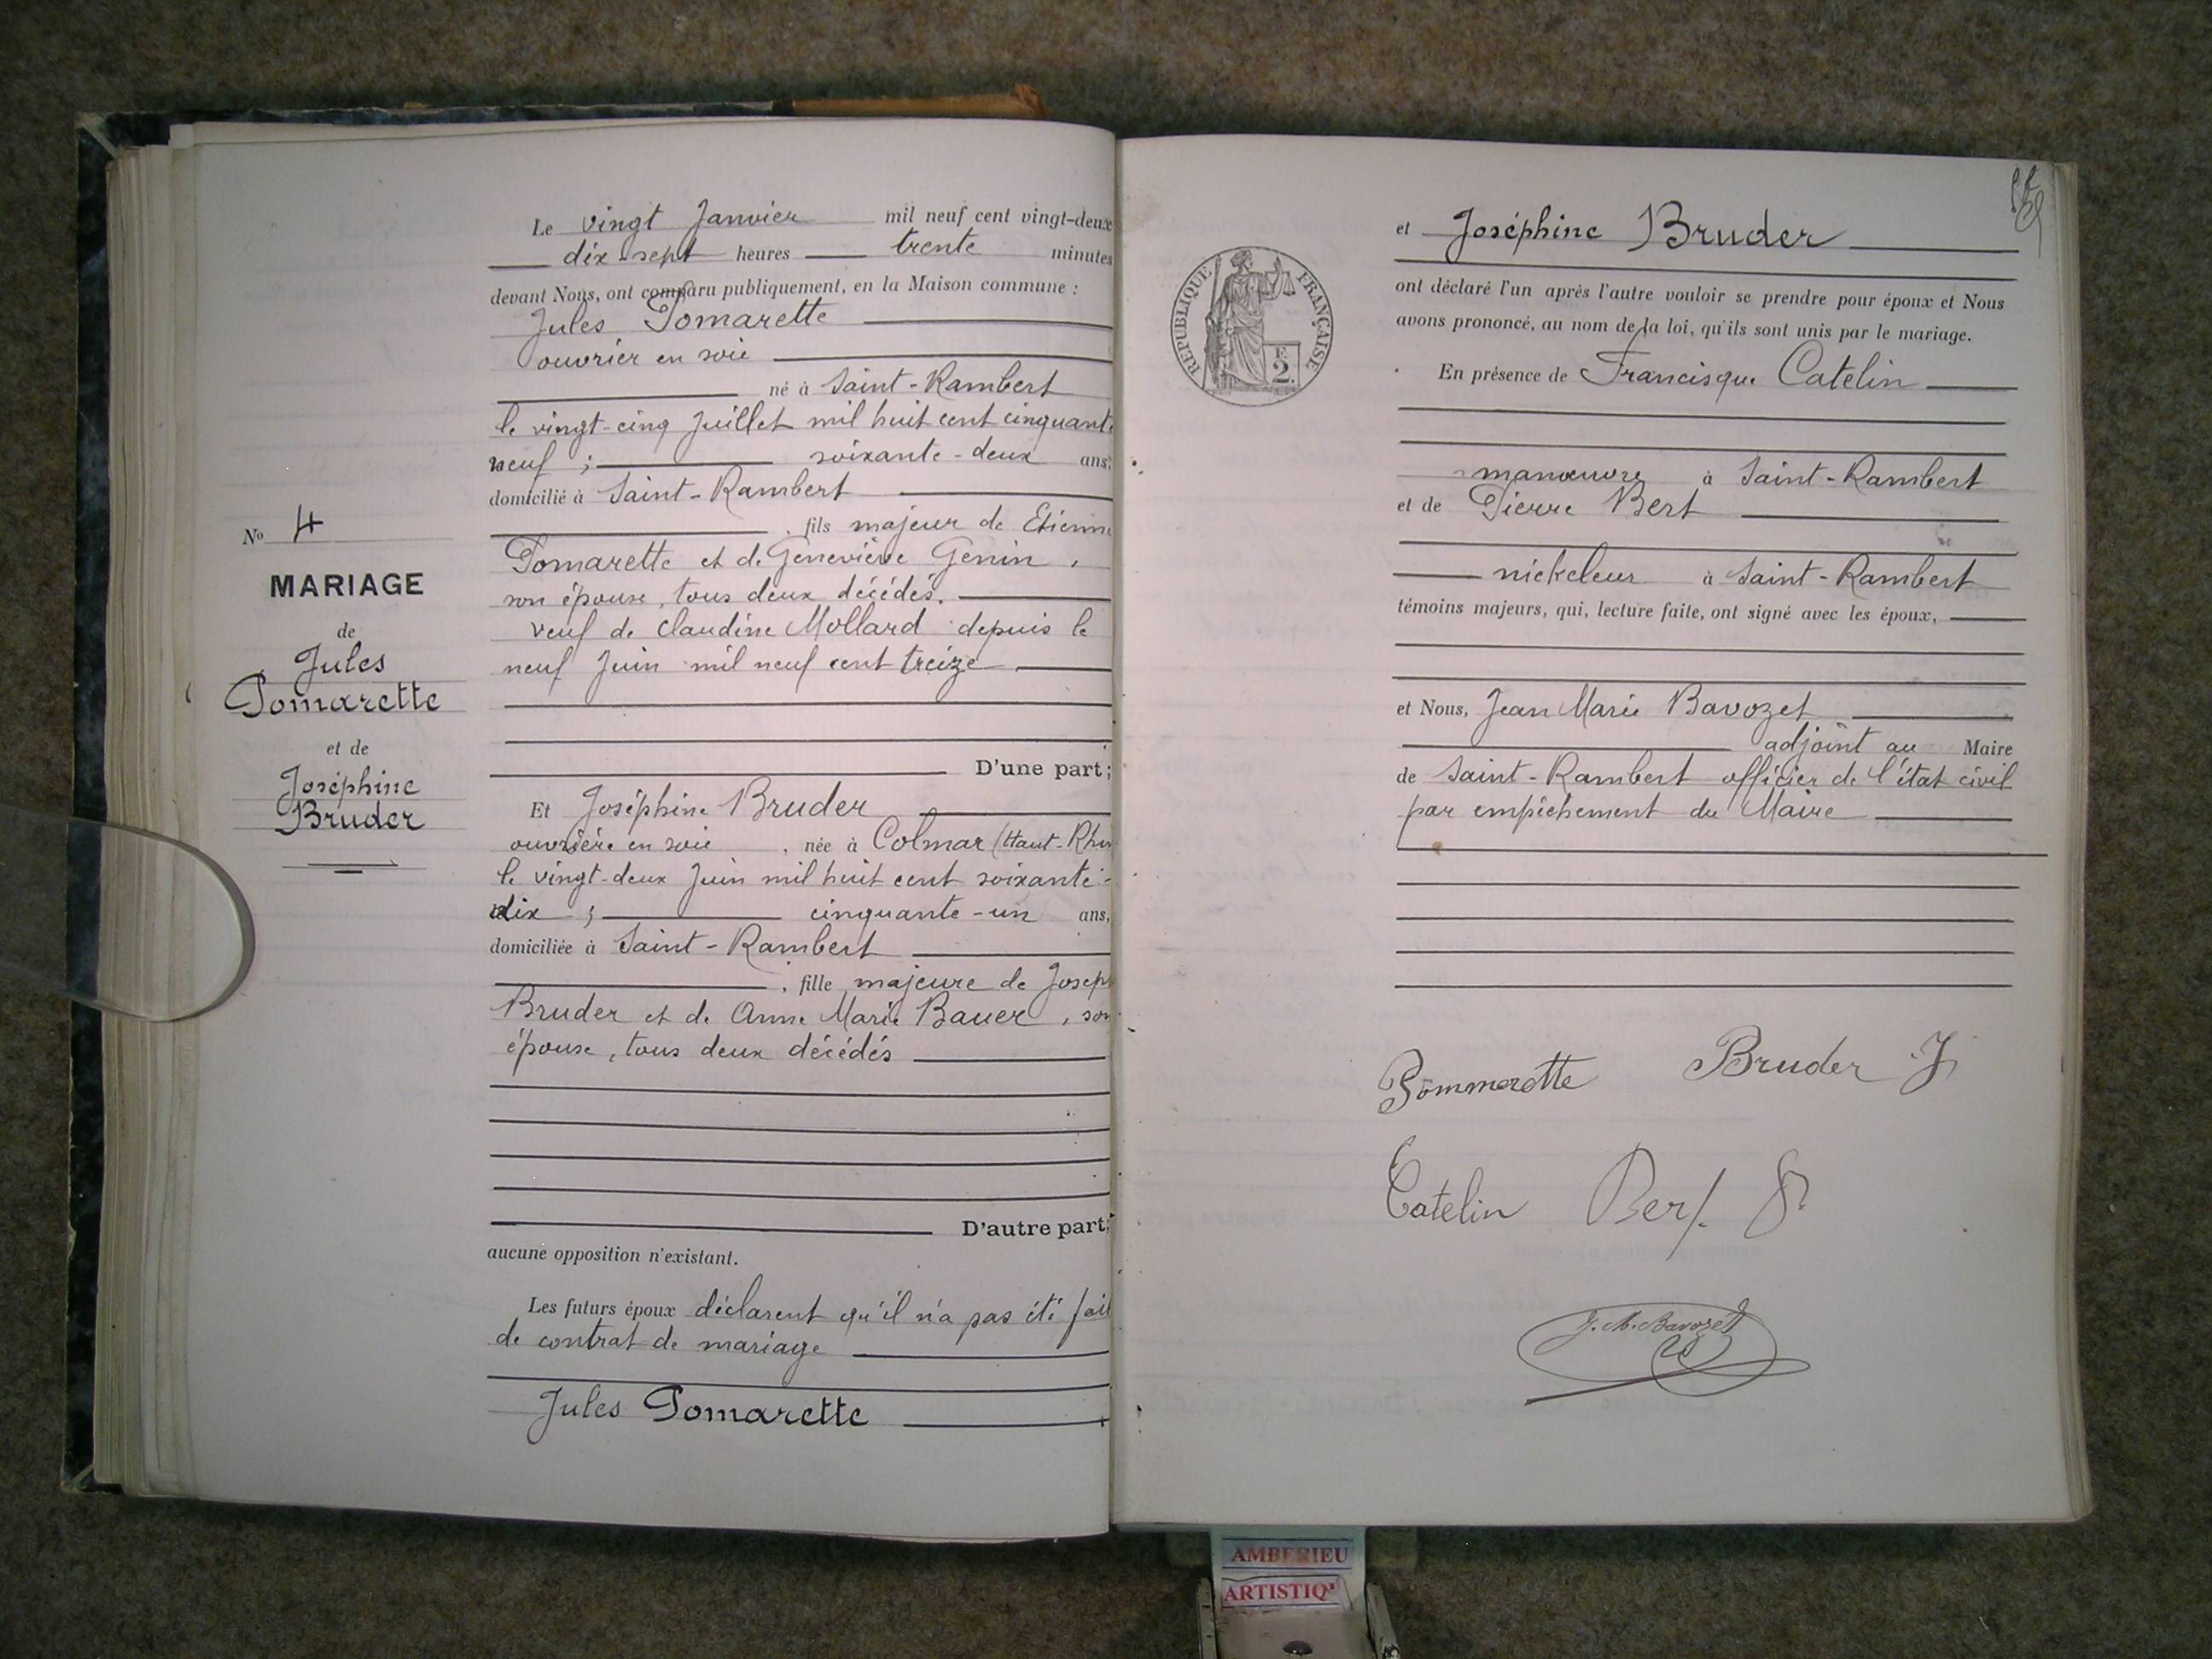 Le vingt Janvier mil neuf cent vingt-deux
dix-sept heures trente minutes
devant Nous, ont comparu publiquement, en la Maison commune :
Jules Pomarette
ouvrier en soie
né à Saint-Rambert
le vingt-cinq Juillet mil huit cent cinquante
neuf ; soixante-deux ans,
domicilié à Saint-Rambert
, fils majeur de Etienne
Pomarette et de Geneviève Genin,
son épouse, tous deux décédés.
veuf de Claudine Mollard depuis le
neuf Juin mil neuf cent treize
D'une part ;
Et Joséphine Bruder
ouvrière en soie , née à Colmar (Haut-Rhin
le vingt-deux Juin mil huit cent soixante-
dix ; cinquante-un ans,
domiciliée à Saint-Rambert
, fille majeure de Joseph
Bruder et de Anne Marie Bauer, son
épouse, tous deux décédés
D'autre part ;
aucune opposition n'existant.
Les futurs époux déclarent qu'il n'a pas été fait
de contrat de mariage
Jules Pomarette
No 4
MARIAGE
de
Jules
Pomarette
et de
Joséphine
Bruder
RÉPUBLIQUE FRANÇAISE
F.
2.
et Joséphine Bruder
ont déclaré l'un après l'autre vouloir se prendre pour époux et Nous
avons prononcé, au nom de la loi, qu'ils sont unis par le mariage.
En présence de Francisque Catelin
manœuvre à Saint-Rambert
et de Pierre Bert
nickeleur à Saint-Rambert
témoins majeurs, qui, lecture faite, ont signé avec les époux,
et Nous, Jean Marie Bavozet
adjoint au Maire
de Saint-Rambert officier de l'état civil
par empêchement du Maire
Pommarette Bruder J
Catelin Bert P
J. M. Bavozet
AMBERIEU
ARTISTIQ